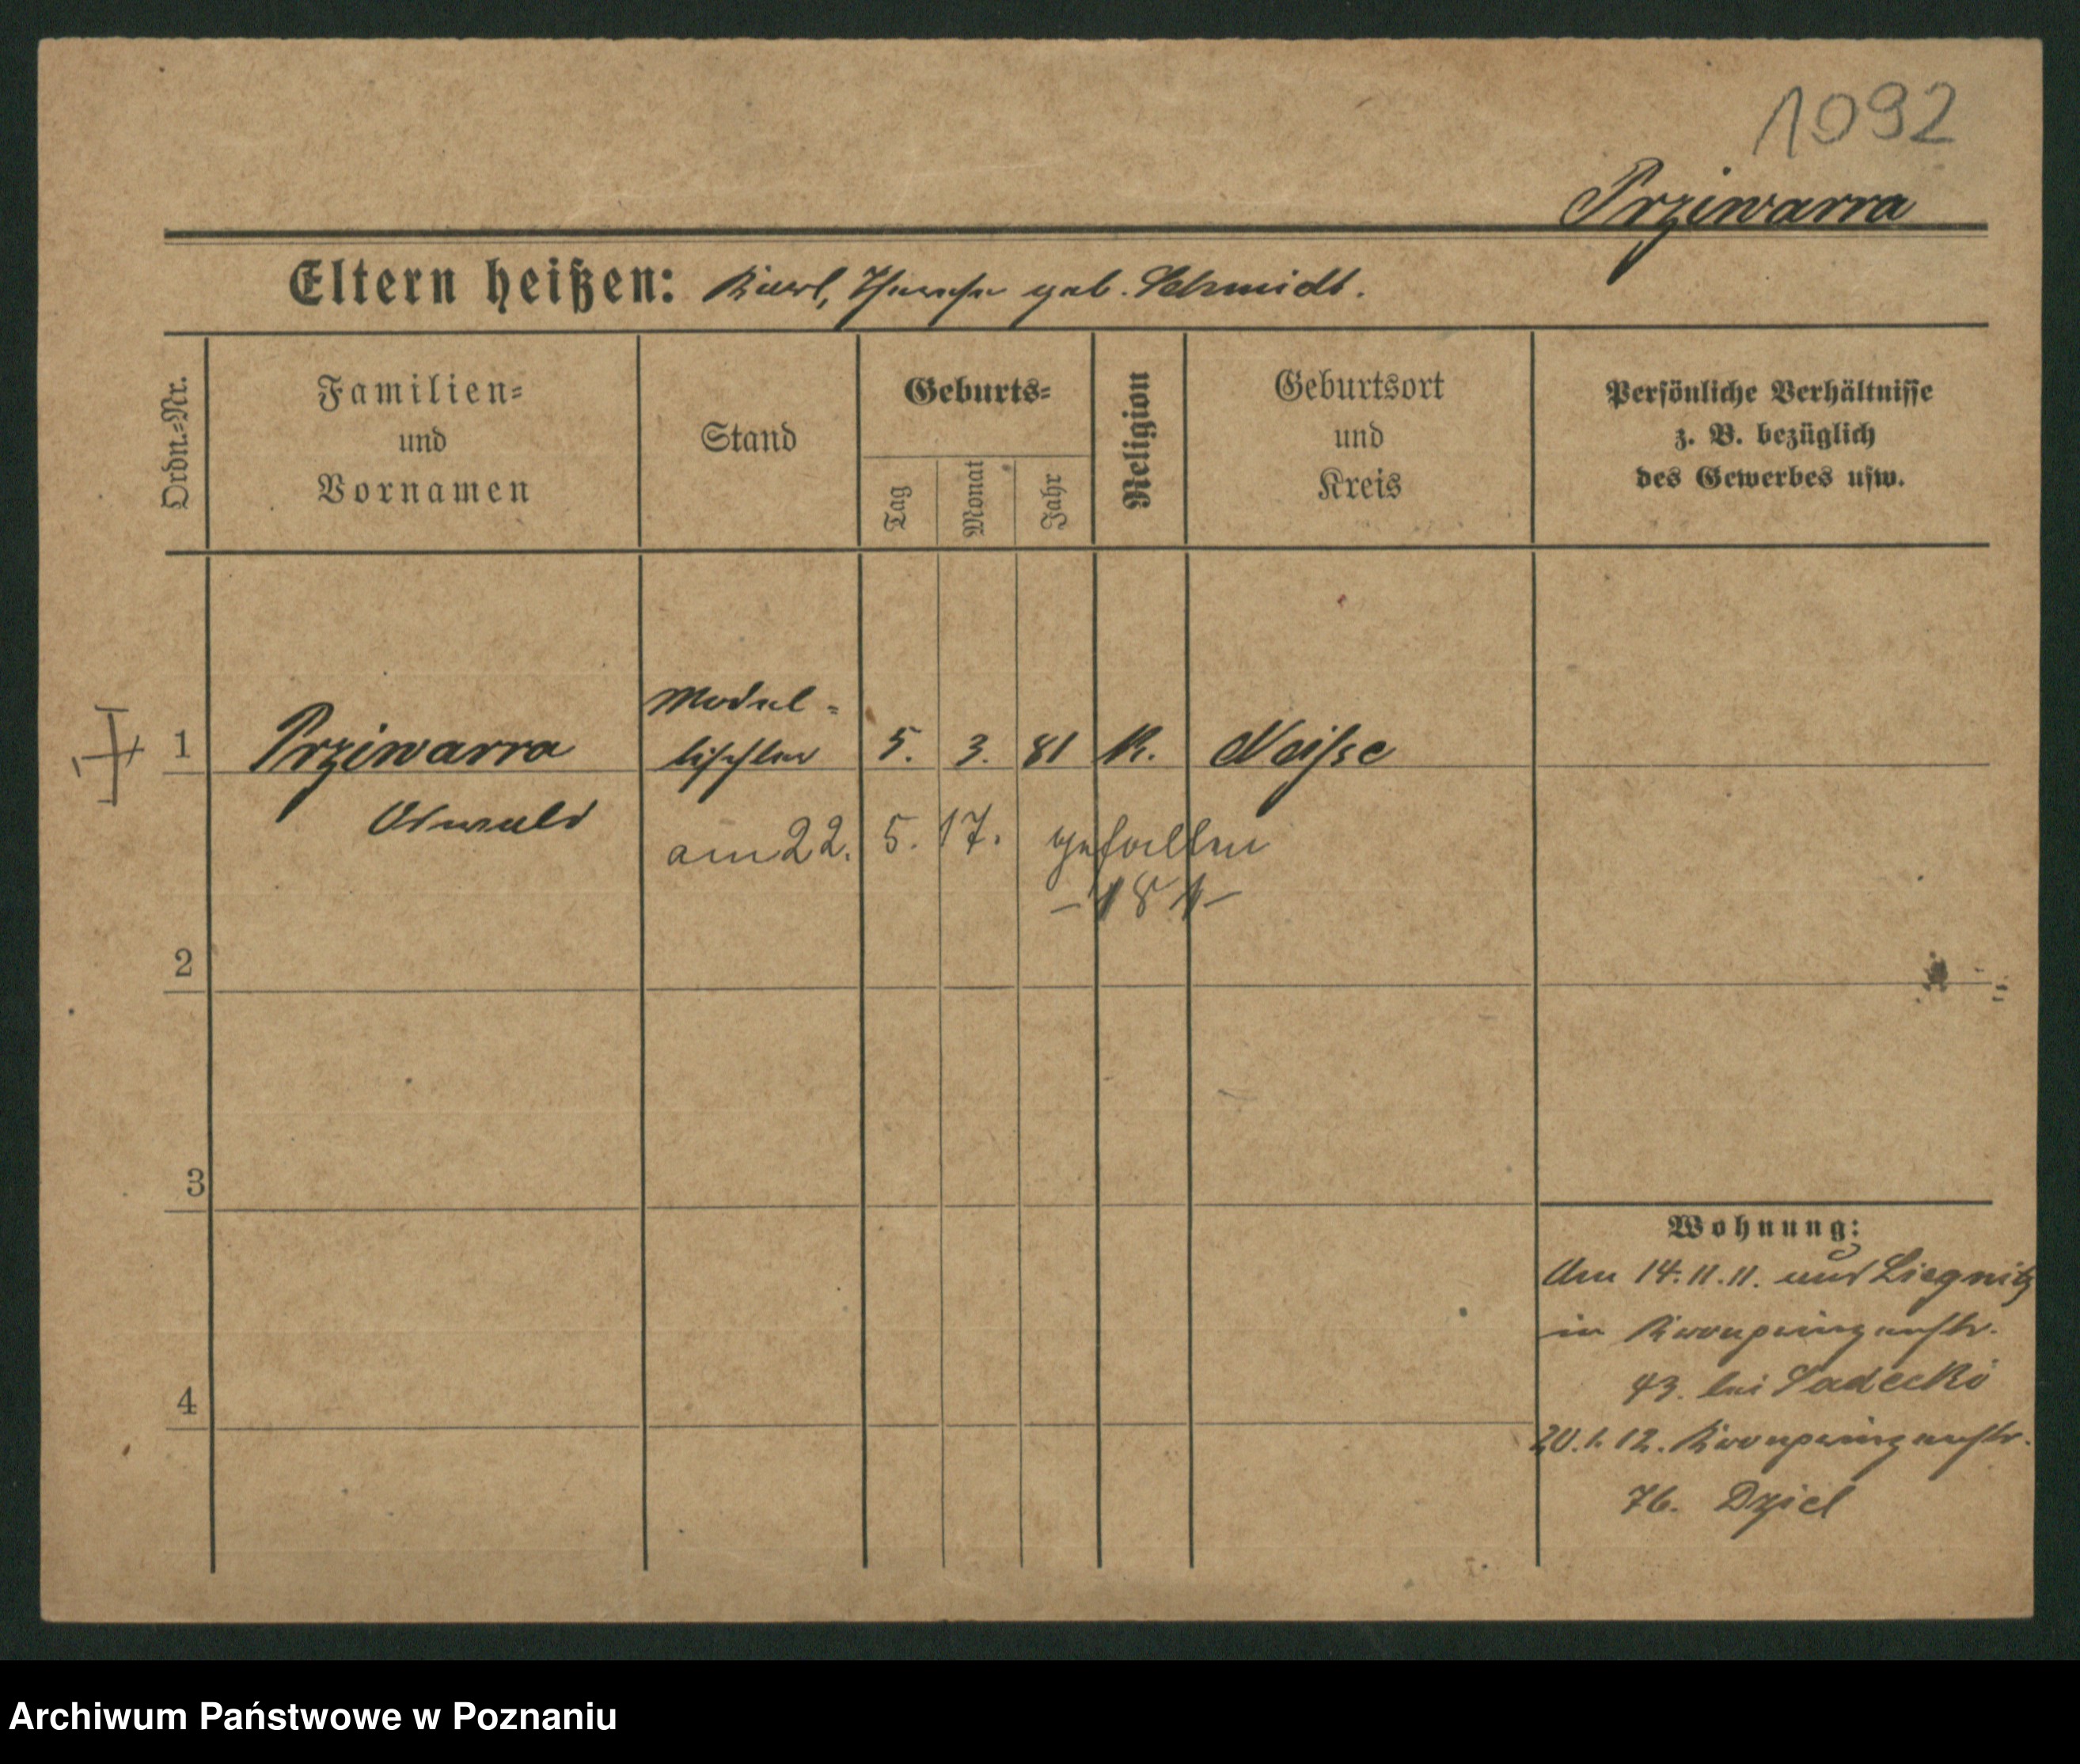 1092
Prziwarra
Eltern heißen: Karl, Therese geb. Schmidt.
Ordn.-Nr.
Familien-
und
Vornamen
Stand
Geburts-
Tag
Monat
Jahr
Religion
Geburtsort
und
Kreis
Persönliche Verhältnisse
z. B. bezüglich
des Gewerbes usw.
Model-
1 Prziwarra tischler 5. 3. 81 K. Neisse
Oswald
am 22. 5. 17. gefallen
2
3
4
Wohnung:
Am 14.11.11. aus Liegnitz
in Kronprinzenstr.
43. bei Sadecki
20.1.12. Kronprinzenstr.
76. Dziel
Archiwum Państwowe w Poznaniu